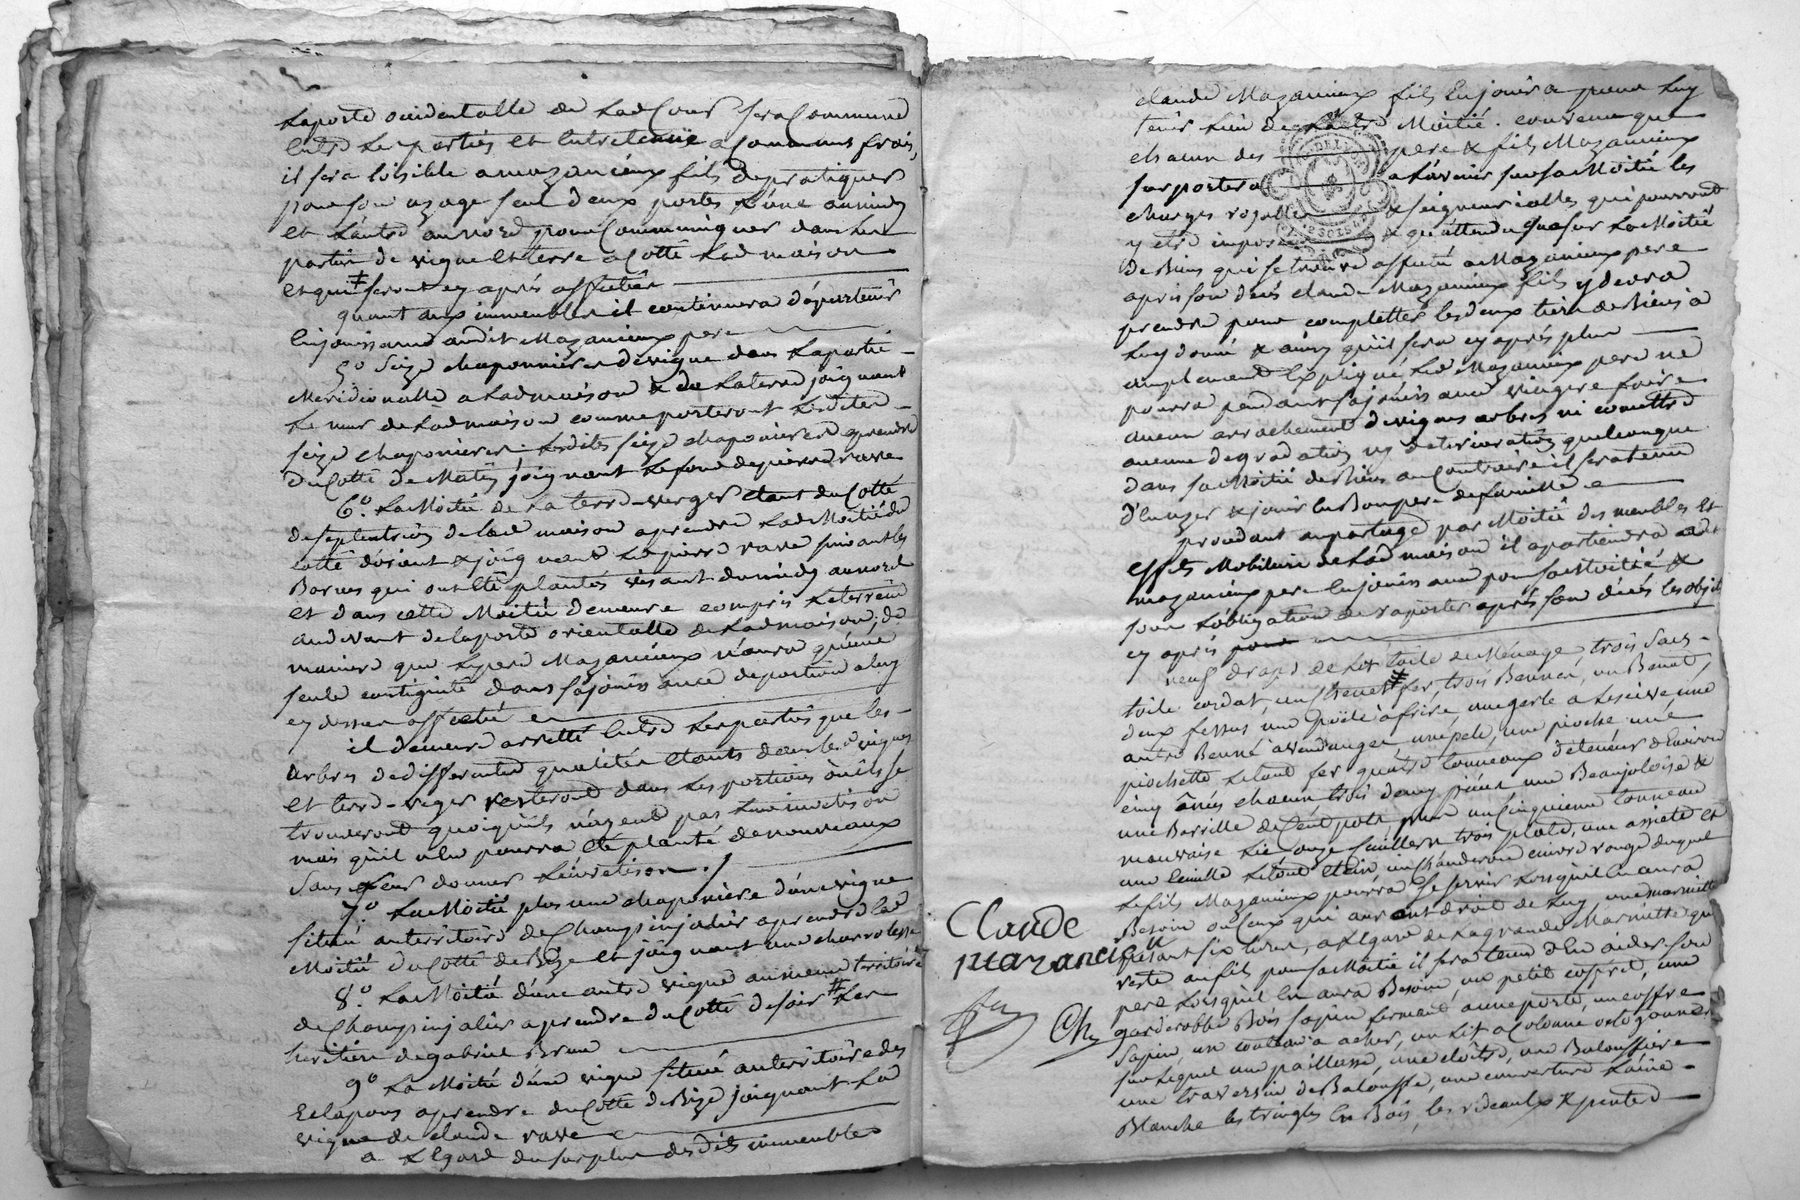 Laporte occidentalle de Lad Cour sera Commune
entre Les parties et Entretenüe a Communs frais,
il sera loisible a mazancieux fils de pratiquer
pour son uzage seul deux portes L'une au midy
et L'autre au nord pour Communiquer dans Les
parties de vigne et terre a Cotté Lad maison
et qui seront cy aprés affectées
quant aux immeubles il continuera d'apartenir
En jouissance audit Mazancieux pere
5° Seize chaponnieres de vigne dans La partie
Meridionalle a Lad maison & de La terre joignant
Le mur de Lad maison comme porteront Lesdites
seize chaponieres. Lesdites seize chaponieres a prendre
du Cotté de Matin joignant Le fond de pierre rave
6.° La Moitié de La terre-verger étant du Cotté
de septentrion de Lad maison a prendre Lad Moitié du
cotté d'orient & joignant Le pierre rave suivant les
Bornes qui ont Eté plantés visant du midy au nord
et dans cette Moitié demeure compris Le terrein
au devant de la porte orientalle de Lad maison, de
maniere que Le pere Mazancieux n'aura qu'une
seule contiguité dans sa jouissance de portion a luy
cy dessus affectée
il demeure arretté Entre Les parties que les
arbres de differentes qualités Etants dans les d vignes
et terre-verger resteront dans Les portions où ils se
trouveront quoiqu'ils n'ayent pas Leur invetison
mais qu'il n'en pourra été planté de nouveaux
sans Leur donner L'invetison ./
7.° La Moitié plus une chaponiere d'une vigne
situé au territoire de Champinjalier a prendre lad
Moitié du Cotté de Bize et joignant une charrolesse
8.° La Moitié d'une autre vigne au meme territoire
de Champinjalier a prendre du Cotté de soir # Les
heritiers de gabriel Brun
9° La Moitié d'une vigne situé au territoire des
Eclapons a prendre du Cotté de Bize joignant La
vigne de claude rave
a L'Egard du surplus desdits immeubles
claude Mazancieux fils En jouira pour Luy
tenir Lieu de L'autre Moitié. convenu que
chacun des pere & fils Mazancieux
suportera a L'avenir sur sa Moitié les
charges royalles & seigneurialles qui pourront
y etre imposé & qu'attendu que sur La Moitié
de Biens qui se trouve affecté a Mazancieux pere
apres son decés claude Mazancieux fils y devra
prendre pour completter les deux tiers de Biens a
Luy donné & ainsy qu'il sera cy aprés plus
amplement Expliqué Led Mazancieux pere ne
pourra pendant sa jouissance viagere faire
aucun arrachement de vignes arbres ni comettre
aucune degradation ny deterioration quelconque
dans sa Moitié de Biens au Contraire il sera tenu
d'en uzer & jouir En Bon pere de famille
procedant au partage par Moitié des meubles et
effets Mobiliers de Lad maison il apartiendra aud
mazancieux pere En jouissance pour sa Moitié &
sous L'obligation de raporter aprés son décés les objets
cy aprés
neuf draps de Lit toile de Ménage, trois sacs
toile cordat, un chenet # fer, trois Bennes, un Benot,
deux fessus une Poële à frire, une gerle a Lescive, une
autre Benne a vendanger, une pele, une pioche une
piochette Letout fer, quatre tonneaux de teneur d'Environ
cinq ânés chacun trois d'eux piéces une Beaujoloise &
une Barrille de Cent pots pour un Cinquieme tonneau
mauvaise Lie onze Cuilleres trois plats, une assiete et
une Ecuelle Letout Etain un chauderon cuivre rouge duquel
Le fils Mazancieux pourra se servir Lorsqu'il En aura
Besoin ou Ceux qui auront droit de Luy, une marmitte
pesant six Livres, a L'Egard de La grande Marmitte qui
reste au fils pour sa Moitié il sera tenu d'En aider son
pere Lorsqu'il En aura Besoin un petit coffret, une
garderobbe Bois sapin fermant a une porte, un coffre
sapin, un couteau a acher, un Lit a Colonne octogonnes
sur Lequel une paillasse, une cloitre, une Baloussiere
une traversin de Balousse, une couverture Laine
Blanche les tringles En Bois, les rideaux & pentes
Claude
mazancieu
Ch